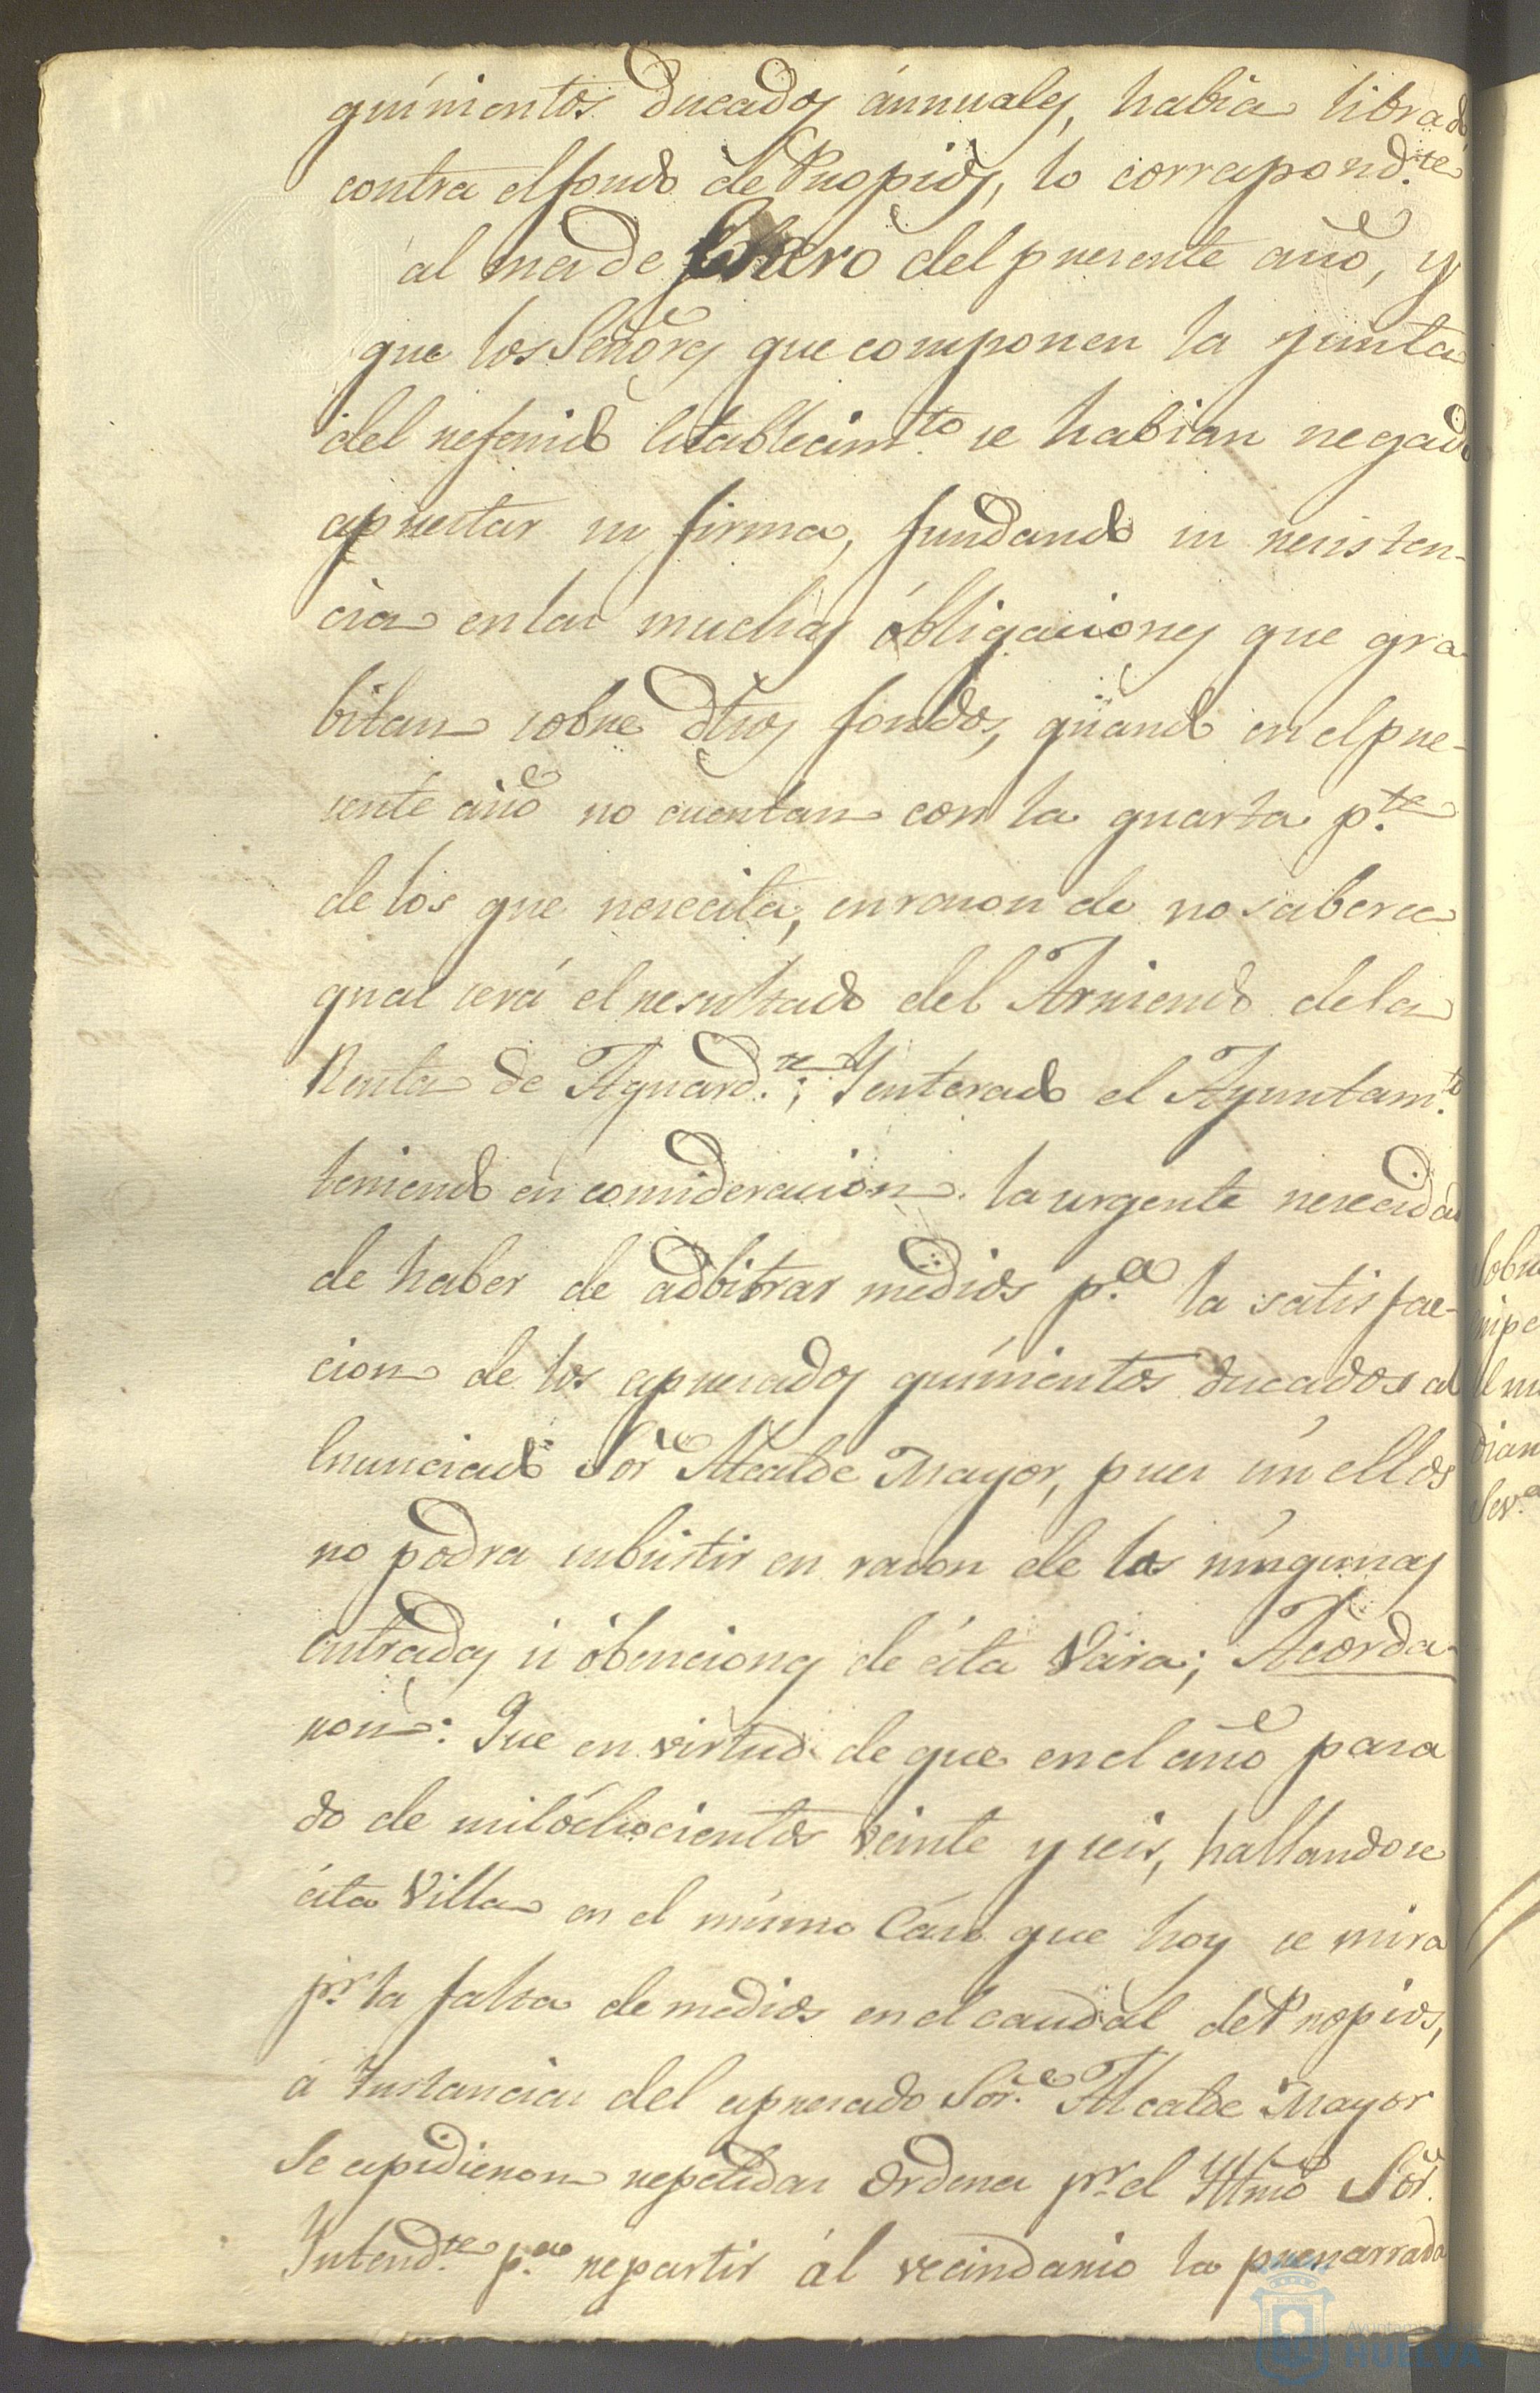 quinientos ducados ánnuales, habia librado
contra el fondo de Propios, lo correspond.te
al mes de febrero del presente año, y
que los Señores que componen la junta
del referido Establecim.to se habian negado
aprestar su firma, fundando su resisten-
cia en las muchas óbligaciones que gra
bitan sobre dhos fondos, quando en el pre-
sente año no cuentan con la quarta p.te
de los que nececita, en razon de no saberce
qual será el resultado del Arriendo de la
Renta de Aguard.te; Y enterado el Ayuntam.to
teniendo en concideracion la urgente nececidad
de haber de adbitrar medios p.a la satisfac-
cion de los apresados quinientos ducados al
Enunciado Sor Alcalde Mayor, pues sin ellos
no podra subsistir en razon de las ningunas
entradas ú óbenciones de ésta Vara; Acorda-
ron: Que en virtud de que en el año pasa
do de mil óchocientos veinte y seis, hallandose
ésta Villa en el mismo Cáso que hoy se mira
pr. la falta de medios en el caudal de Propios,
a Instancias del apresado Sor. Alcalde Mayor
Se espidieron repetidas Ordenes pr. el Yltmo Sor.
Intend.te p.a repartir ál vecindario la prenarrada
sobre
Sev.a
Ayuntamiento de
HUELVA